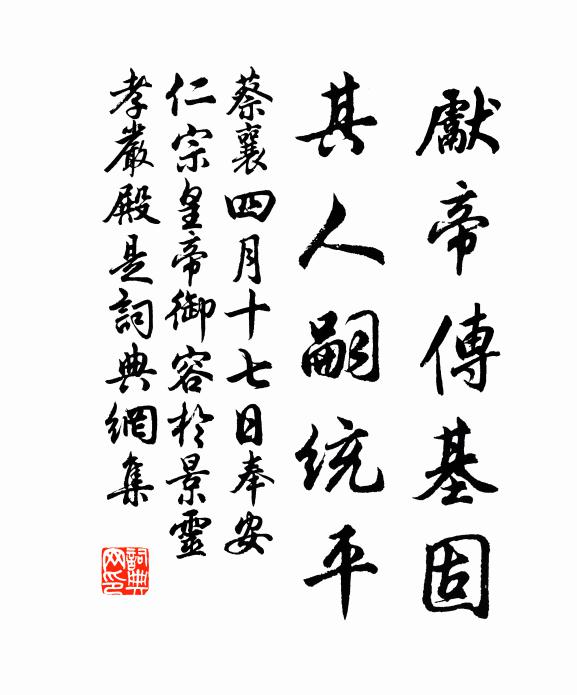 獻帝傳基固
其人嗣统平
蔡襄四月十七日奉安
仁宗皇帝御容於景靈
孝嚴殿是詞典網集
詞典網印